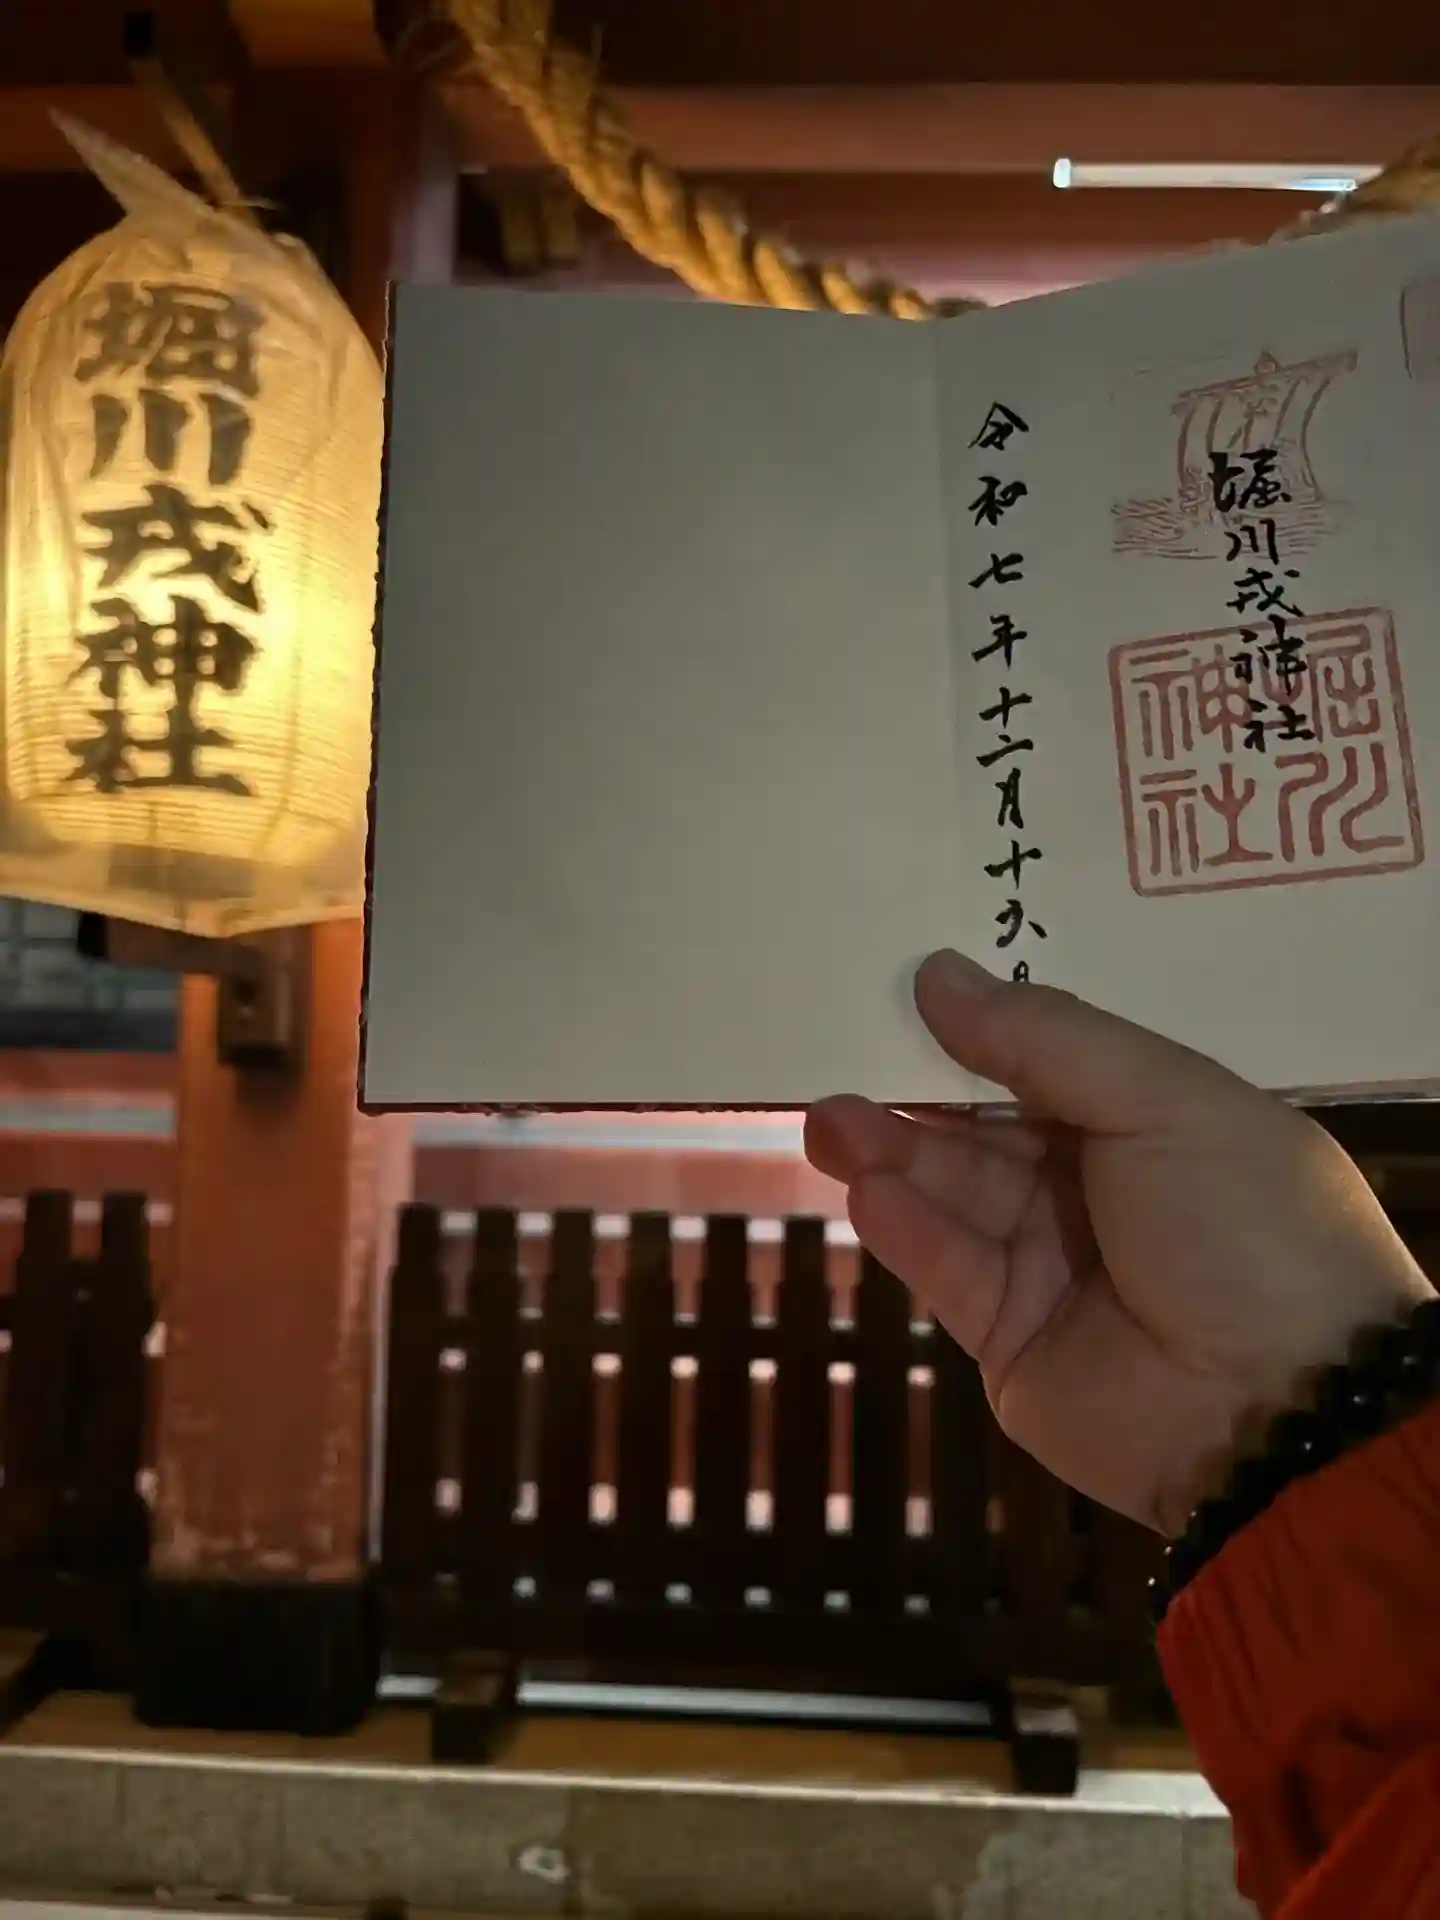 堀川戎神社
堀川戎神社
堀川
神社
令和七年十二月十六日